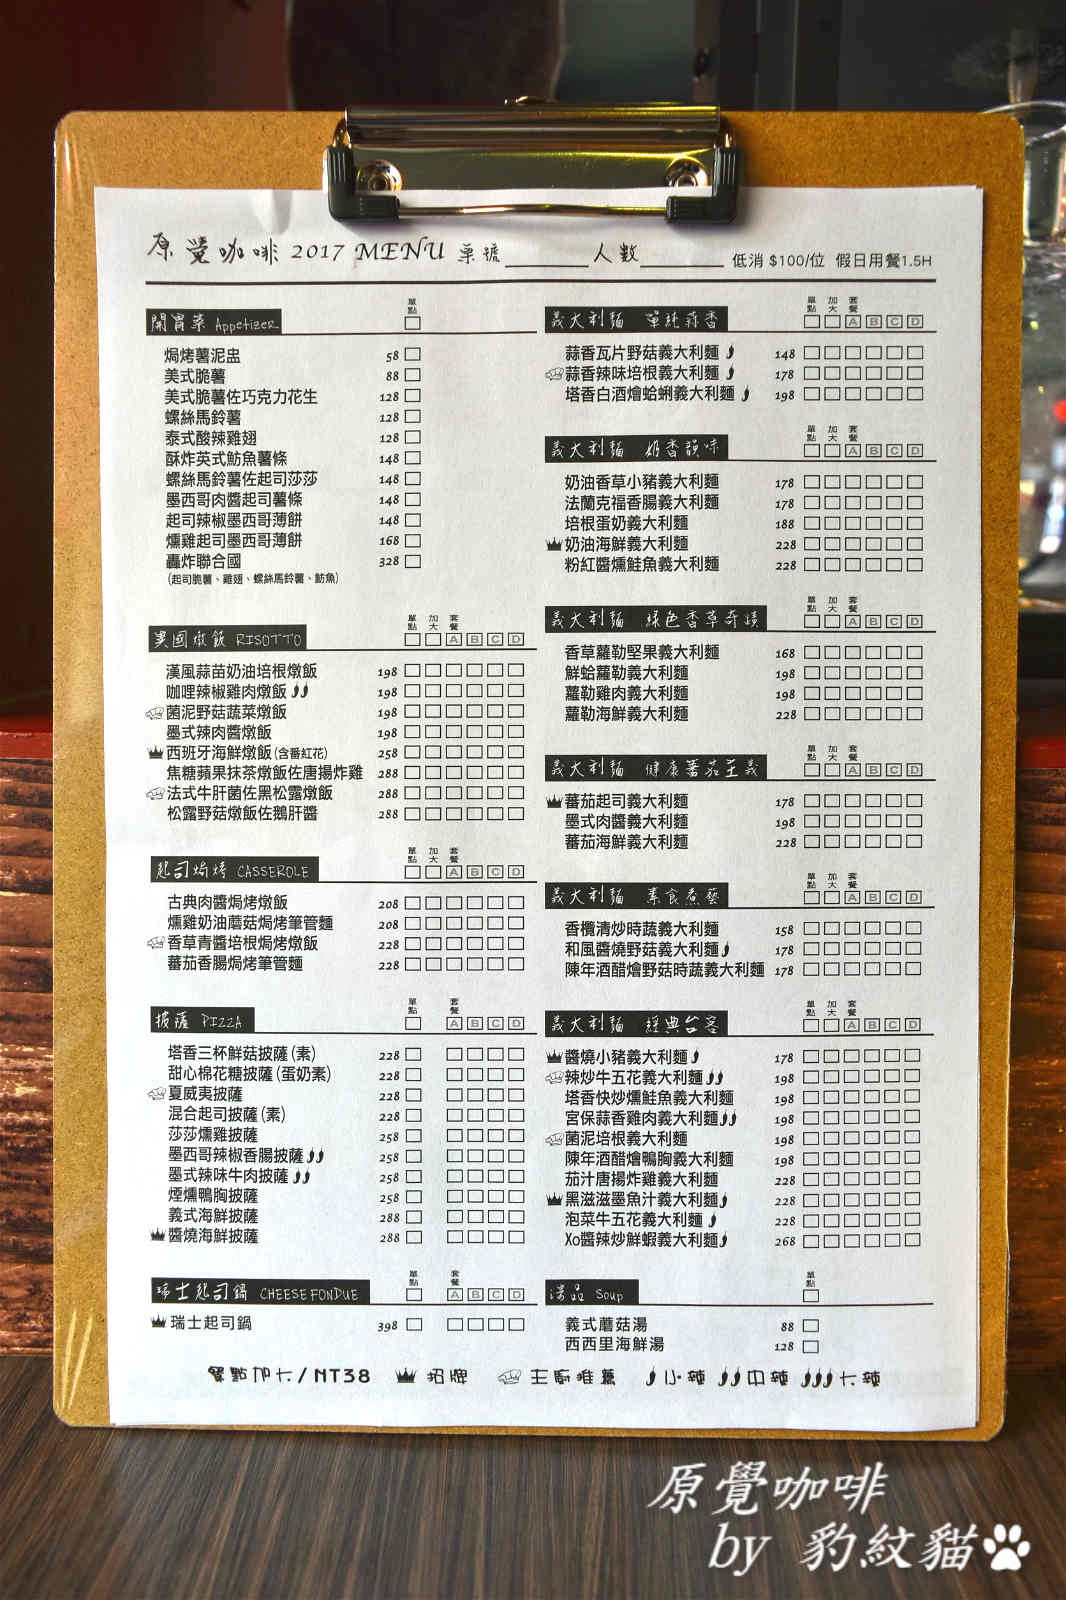 原覺咖啡 2017 MENU 桌號 人數 低消 $100/位 假日用餐1.5H
開胃菜 Appetizer 單點
焗烤薯泥盅 58
美式脆薯 88
美式脆薯佐巧克力花生 128
螺絲馬鈴薯 128
泰式酸辣雞翅 128
酥炸英式魴魚薯條 148
螺絲馬鈴薯佐起司莎莎 148
墨西哥肉醬起司薯條 148
起司辣椒墨西哥薄餅 148
燻雞起司墨西哥薄餅 168
轟炸聯合國 328
(起司脆薯、雞翅、螺絲馬鈴薯、魴魚)
異國燉飯 RISOTTO 單點 加大 套餐 A B C D
漢風蒜苗奶油培根燉飯 198
咖哩辣椒雞肉燉飯 198
菌泥野菇蔬菜燉飯 198
墨式辣肉醬燉飯 198
西班牙海鮮燉飯(含番紅花) 258
焦糖蘋果抹茶燉飯佐唐揚炸雞 288
法式牛肝菌佐黑松露燉飯 288
松露野菇燉飯佐鵝肝醬 288
起司焗烤 CASSEROLE 單點 加大 套餐 A B C D
古典肉醬焗烤燉飯 208
燻雞奶油蘑菇焗烤筆管麵 208
香草青醬培根焗烤燉飯 228
蕃茄香腸焗烤筆管麵 228
披薩 PIZZA 單點 套餐 A B C D
塔香三杯鮮菇披薩(素) 228
甜心棉花糖披薩(蛋奶素) 228
夏威夷披薩 228
混合起司披薩(素) 228
莎莎燻雞披薩 258
墨西哥辣椒香腸披薩 258
墨式辣味牛肉披薩 258
煙燻鴨胸披薩 258
義式海鮮披薩 288
醬燒海鮮披薩 288
瑞士起司鍋 CHEESE FONDUE 單點 套餐 A B C D
瑞士起司鍋 398
義大利麵 單純蒜香 單點 加大 套餐 A B C D
蒜香瓦片野菇義大利麵 148
蒜香辣味培根義大利麵 178
塔香白酒燴蛤蜊義大利麵 198
義大利麵 奶香韻味 單點 加大 套餐 A B C D
奶油香草小豬義大利麵 178
法蘭克福香腸義大利麵 178
培根蛋奶義大利麵 188
奶油海鮮義大利麵 228
粉紅醬燻鮭魚義大利麵 228
義大利麵 綠色香草奇蹟 單點 加大 套餐 A B C D
香草蘿勒堅果義大利麵 168
鮮蛤蘿勒義大利麵 198
蘿勒雞肉義大利麵 198
蘿勒海鮮義大利麵 228
義大利麵 健康蕃茄主義 單點 加大 套餐 A B C D
蕃茄起司義大利麵 178
墨式肉醬義大利麵 198
蕃茄海鮮義大利麵 228
義大利麵 素食煮藝 單點 加大 套餐 A B C D
香欖清炒時蔬義大利麵 158
和風醬燒野菇義大利麵 178
陳年酒醋燴野菇時蔬義大利麵 178
義大利麵 經典台客 單點 加大 套餐 A B C D
醬燒小豬義大利麵 178
辣炒牛五花義大利麵 198
塔香快炒燻鮭魚義大利麵 198
宮保蒜香雞肉義大利麵 198
菌泥培根義大利麵 198
陳年酒醋燴鴨胸義大利麵 198
茄汁唐揚炸雞義大利麵 228
黑滋滋墨魚汁義大利麵 228
泡菜牛五花義大利麵 228
Xo醬辣炒鮮蝦義大利麵 268
湯品 Soup 單點
義式蘑菇湯 88
西西里海鮮湯 128
餐點加大/NT38 招牌 主廚推薦 小辣 中辣 大辣
原覺咖啡
by 豹紋貓